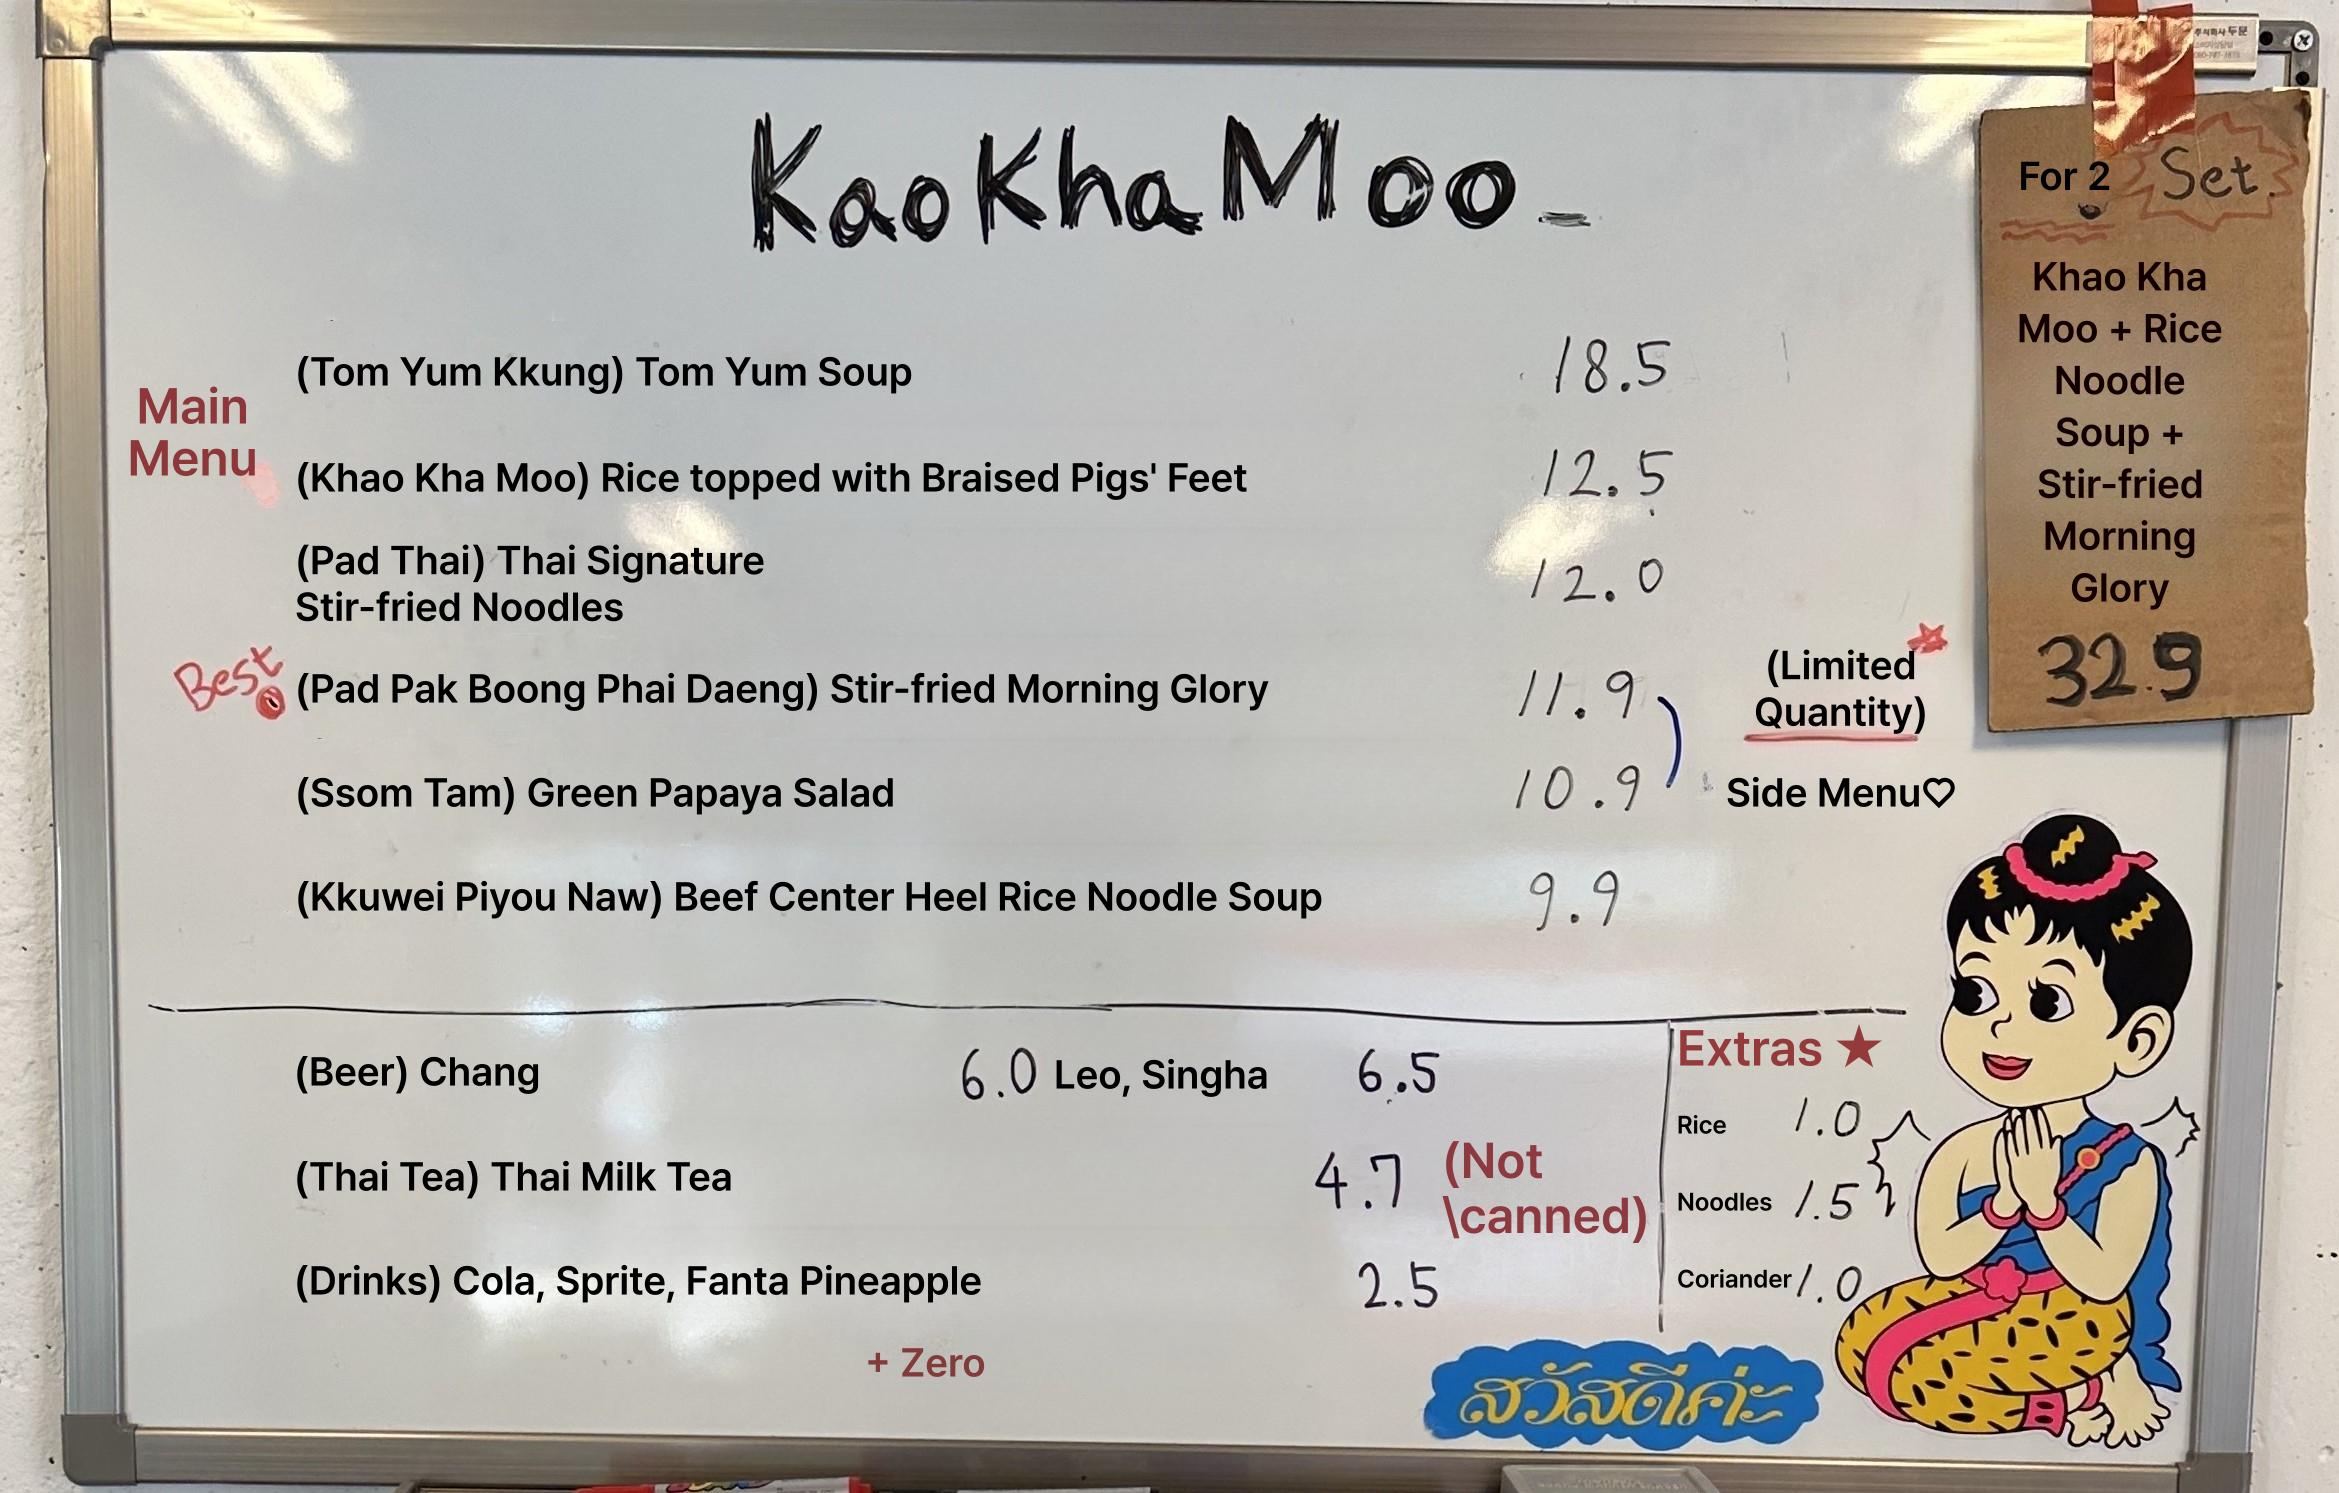 주식회사 두문
KaoKhaMoo
For 2 Set.
Khao Kha
Moo + Rice
Noodle
Soup +
Stir-fried
Morning
Glory
32.9
Main
Menu
(Tom Yum Kkung) Tom Yum Soup 18.5
(Khao Kha Moo) Rice topped with Braised Pigs' Feet 12.5
(Pad Thai) Thai Signature
Stir-fried Noodles 12.0
Best (Pad Pak Boong Phai Daeng) Stir-fried Morning Glory 11.9
(Limited
Quantity)
(Ssom Tam) Green Papaya Salad 10.9 Side Menu♡
(Kkuwei Piyou Naw) Beef Center Heel Rice Noodle Soup 9.9
(Beer) Chang 6.0 Leo, Singha 6.5
(Thai Tea) Thai Milk Tea 4.7 (Not
\canned)
(Drinks) Cola, Sprite, Fanta Pineapple 2.5
+ Zero
Extras ★
Rice 1.0
Noodles 1.5
Coriander 1.0
สวัสดีค่ะ